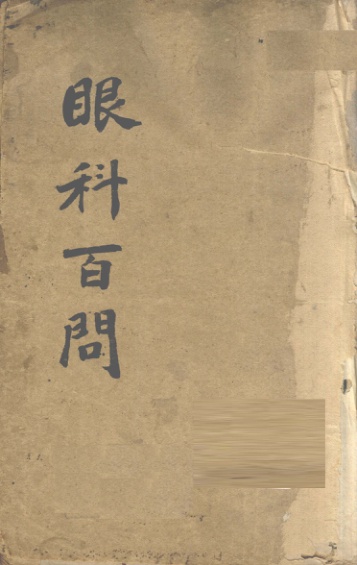 眼科百問